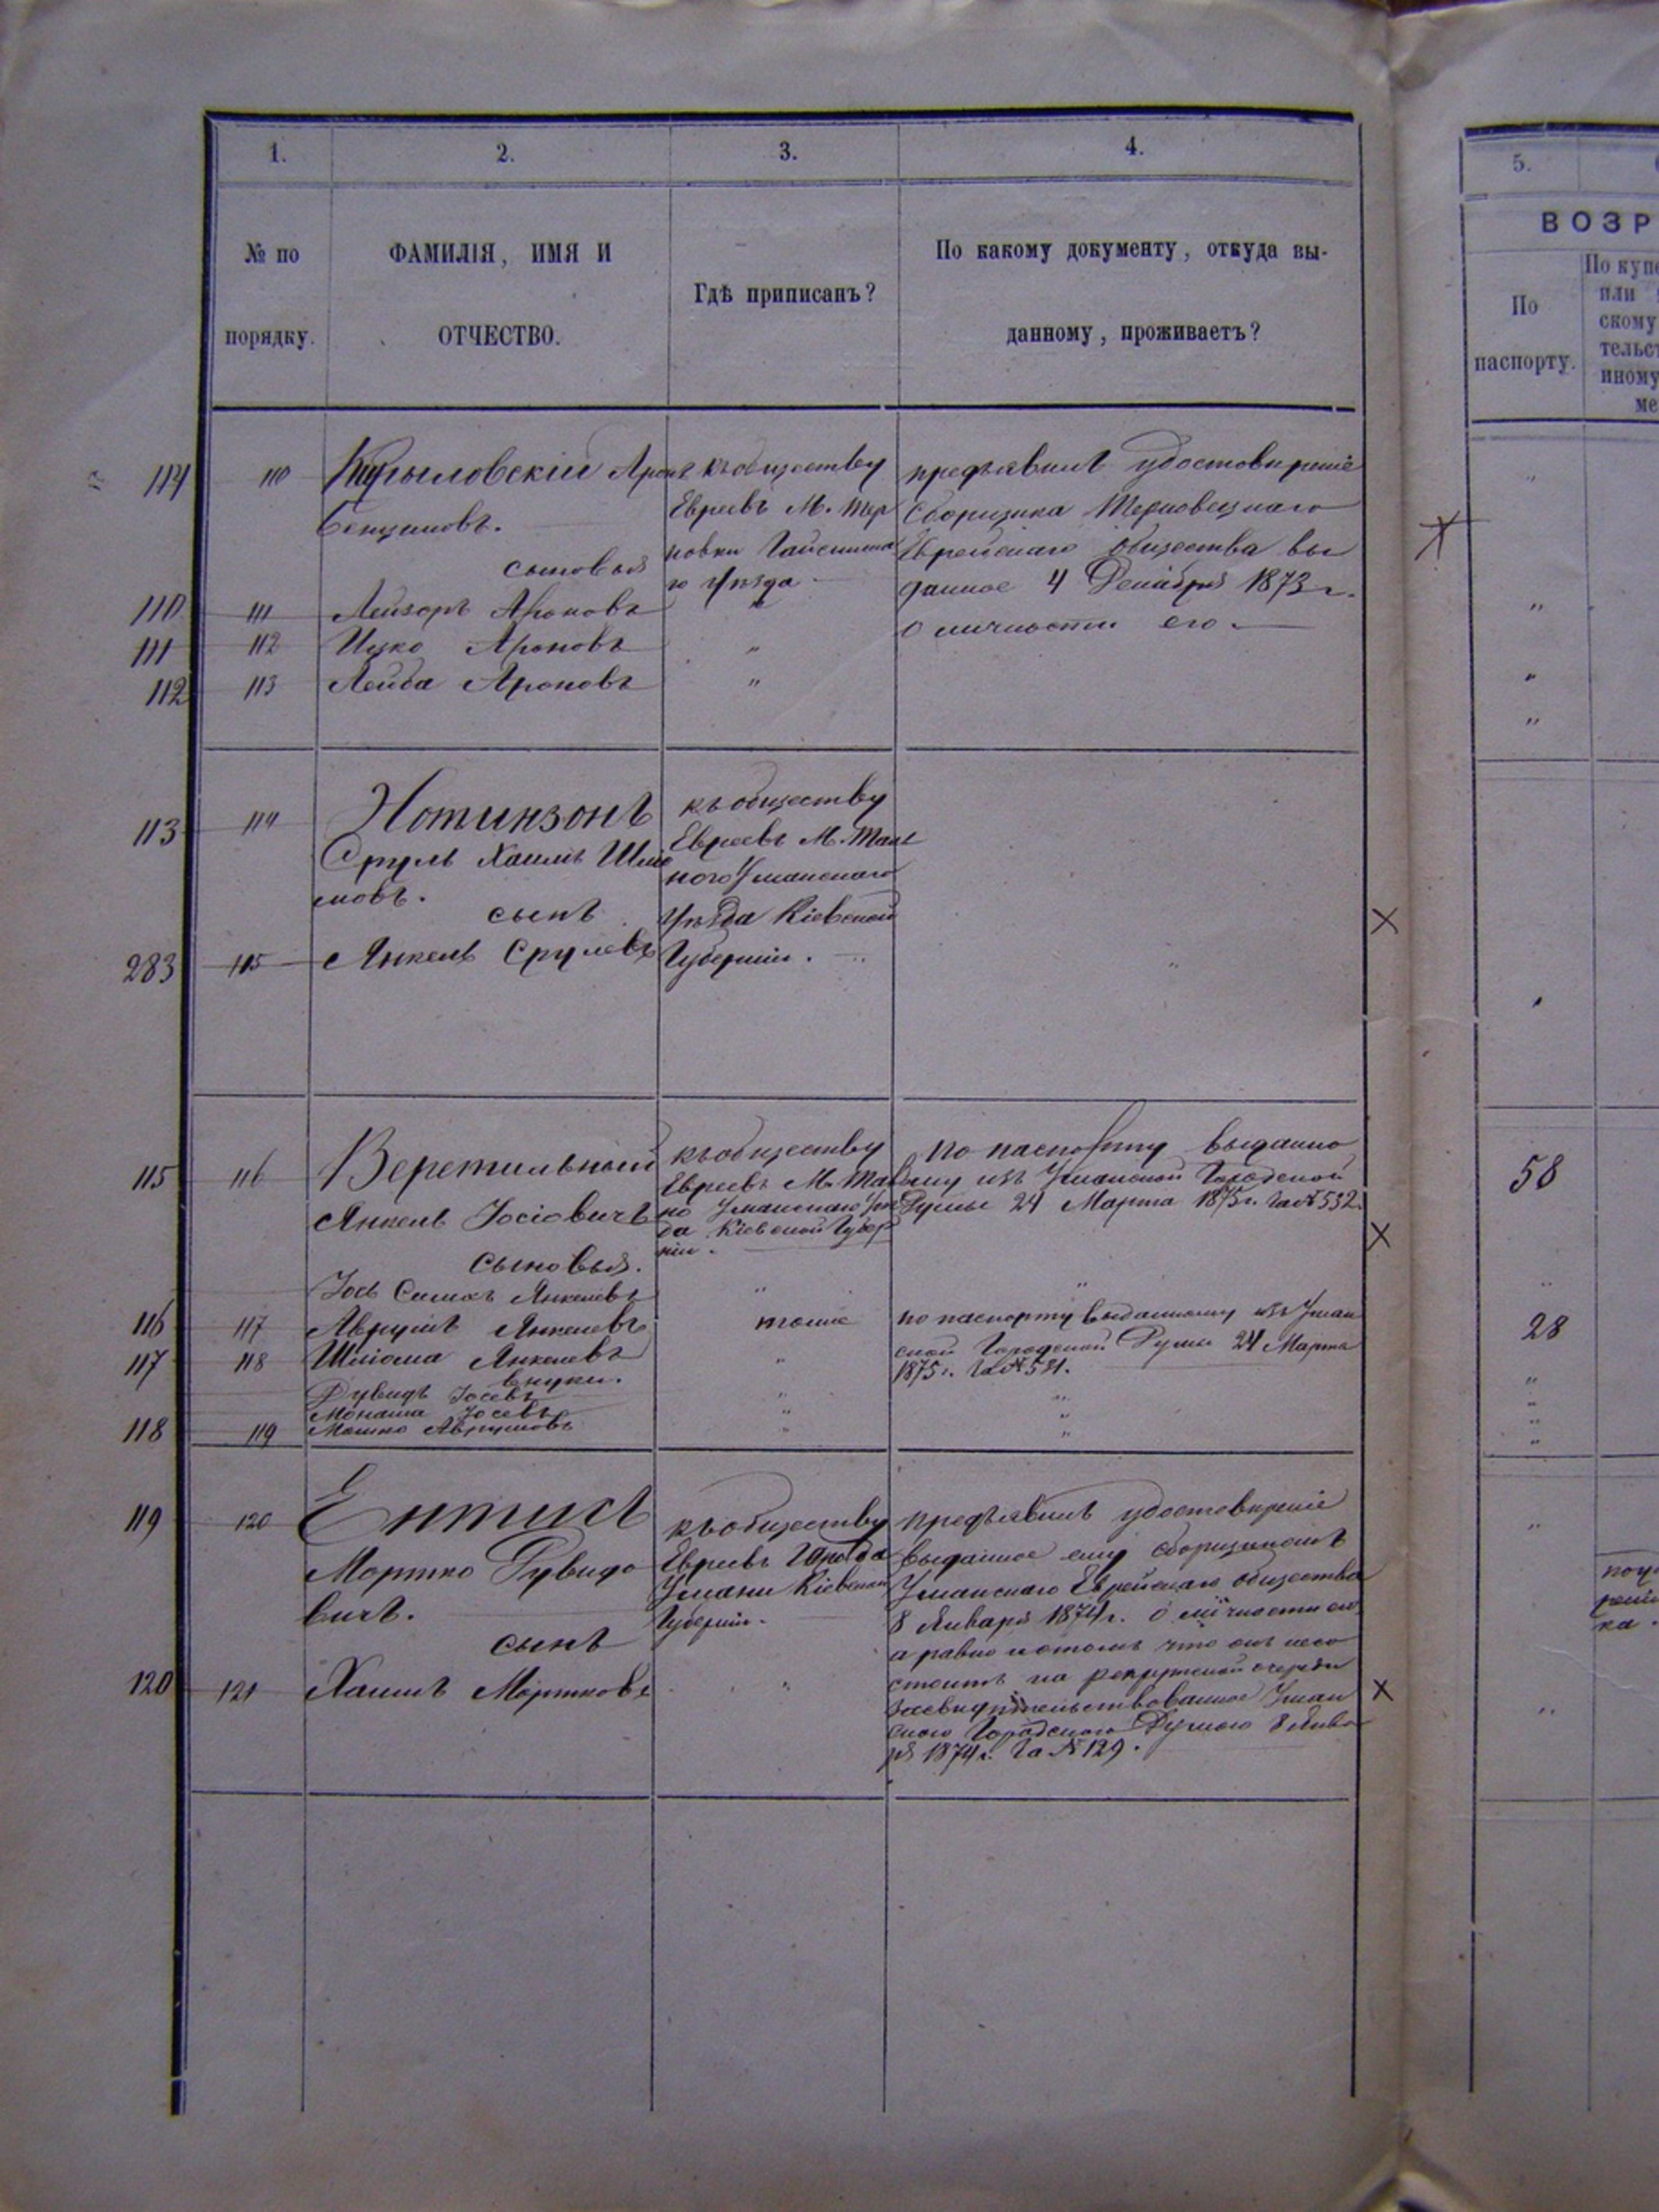 1. 2. 3. 4.
№ по порядку.
ФАМИЛІЯ, ИМЯ И
ОТЧЕСТВО.
Гдѣ приписанъ?
По какому документу, откуда вы-
данному, проживаетъ?
114 110
Аронъ
Бенціоновъ.
сыновья
110 111 Лейзоръ Ароновъ
111 112 Ицко Ароновъ
112 113 Лейба Ароновъ
къ обществу
Евреевъ М. Тер
новки Гайсинска
го уѣзда
"
"
"
предъявилъ удостовѣреніе
Сборщика Терновецкаго
Еврейскаго общества вы
данное 4 Декабря 1873 г.
о личности его.
113 114 Нотинзонъ
Сруль Хаимъ Шлio
мовъ.
сынъ
283 115 Янкель Срулевъ
къ обществу
Евреевъ М. Таль
ного Уманскаго
уѣзда Кіевской
Губерніи.
"
115 116 Веретильный
Янкель Іосіовичъ
сыновья.
Іось Симха Янкелевъ
116 117 Аврумъ Янкелевъ
117 118 Шліома Янкелевъ
внуки.
Дувидъ Іосевъ
Монаша Іосевъ
118 119 Мошко Аврумовъ
къ обществу
Евреевъ М. Таль
но Уманскаго Уѣз
да Кіевской Губер
ніи.
"
тоже
"
"
"
"
по паспорту выданно
му изъ Уманской Городской
Думы 24 Марта 1875 г. за № 532.
"
по паспорту выданному изъ Уман
ской Городской Думы 24 Марта
1875 г. за № 531.
"
"
"
119 120 Ентисъ
Мортко Дувидо
вичъ.
сынъ
120 121 Хаимъ Мортковъ
къ обществу
Евреевъ Города
Умани Кіевской
Губерніи.
"
предъявилъ удостовѣреніе
выданное ему сборщикомъ
Уманскаго Еврейскаго общества
8 Января 1874 г. о личности его,
а равно и о томъ что онъ несо
стоитъ на рекрутской очереди
засвидѣтельствованное Уман
скою Городскою Думою 8 Янва
ря 1874 г. за № 129.
5.
ВОЗР
По
паспорту.
По купе
или
скому
тельст
иному
ме
"
"
"
"
58
"
28
"
"
"
"
"
"
ка.